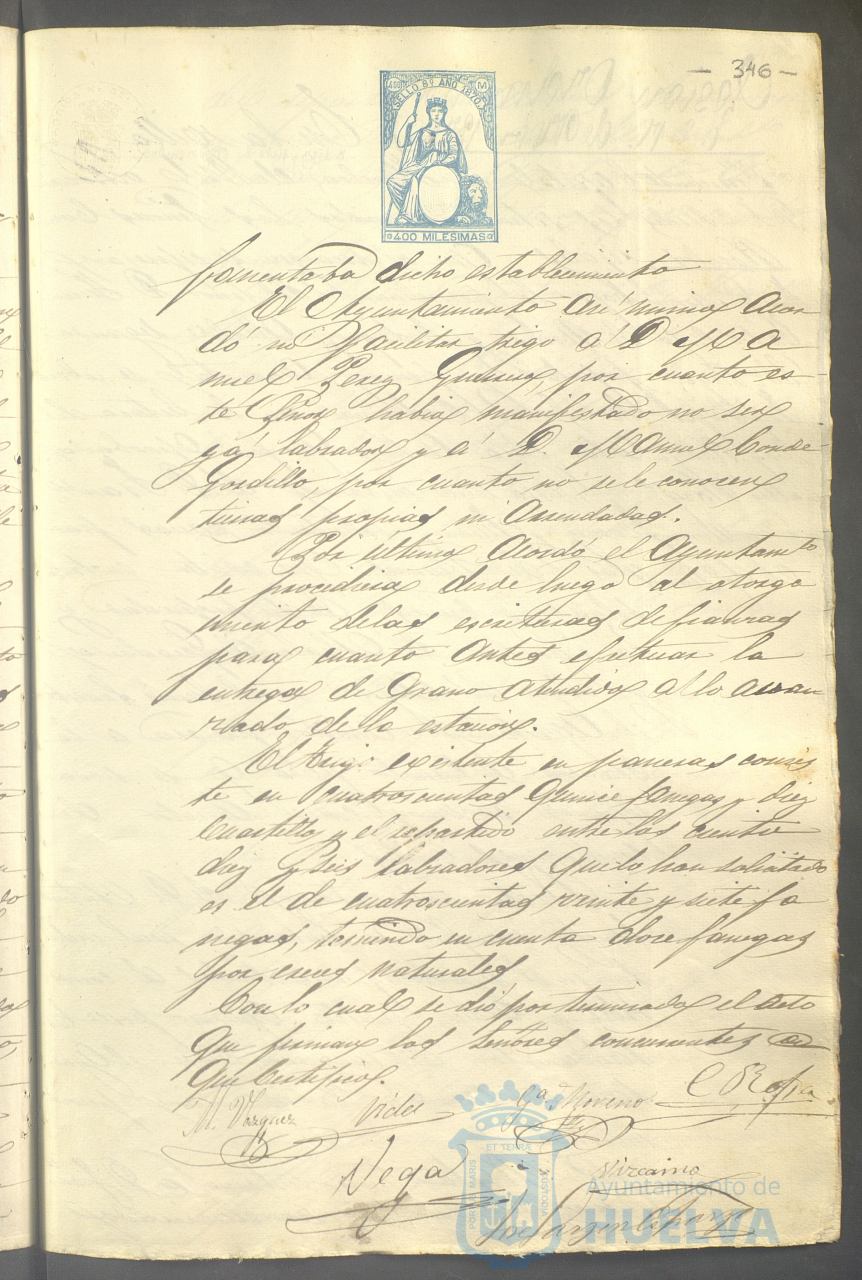 — 346 —
SELLO 8º AÑO 1870.
400 M
400 MILESIMAS
fomentaba dicho establecimiento
El Ayuntamiento asi mismo acor
dó no facilitar trigo a D. Ma
nuel Perez por cuanto es-
te Señor habia manifestado no ser
ya labrador y a D. Manuel Conde
Gordillo, por cuanto no se le conocen
tierras propias ni arrendadas.
Por último acordó el Ayuntamto
se procediera desde luego al otorga
miento de las escrituras de fianzas
para cuanto antes efectuar la
entrega de grano atendido a lo avan
zado de la estacion.
El trigo existente en paneras consis
te en cuatrocientas quince fanegas y diez
cuartillos y el repartido entre los ciento
diez y seis labradores que lo han solicitado
es el de cuatrocientas veinte y siete fa
negas, teniendo en cuenta doce fanegas
por creces naturales
Con lo cual se dió por terminado el acto
que firman los Señores concurrentes de
que certifico.
M. Vazquez Vides Ga. Moreno
Vega Vizcaino
PORTUS MARIS ET TERRÆ CUSTODIA
Ayuntamiento de
HUELVA